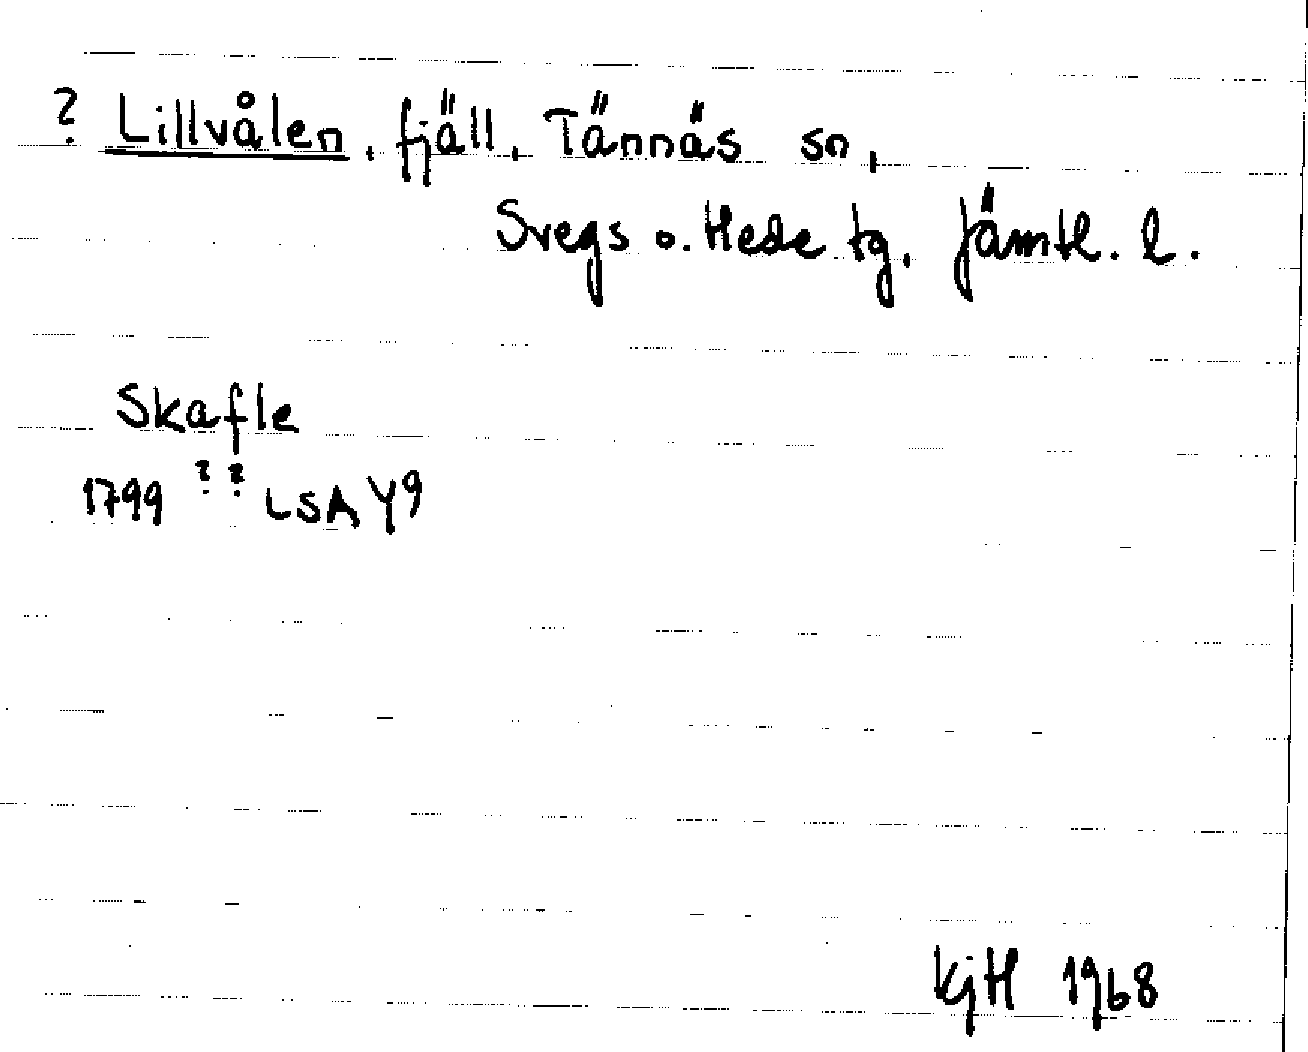 ? Lillvålen, fjäll, Tännäs sn,
Svegs o. Hede tg. Jämtl. l.
Skafle
1799 ? ? LSA Y9
KjH 1968